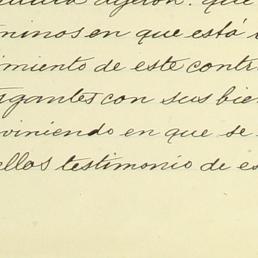 dijeron: que
minos en que está
imiento de este contr
rgantes con sus bien
viniendo en que se
ellos testimonio de es